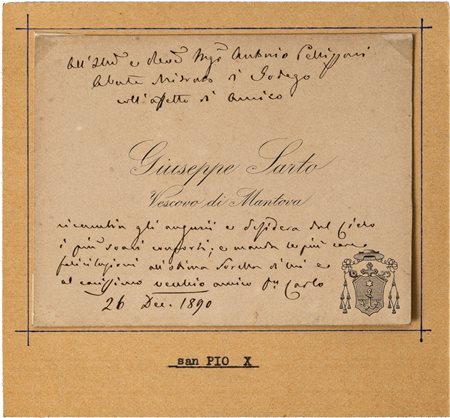 All'Ill.mo e Rev.mo Mgr Antonio Pellizzari
Abate Mitrato di Godego
coll'affetto di amico
Giuseppe Sarto
Vescovo di Mantova
ricambia gli augurii e desidera dal Cielo
i più soavi conforti; e manda le più care
felicitazioni all'ottima Sorella di Lui e
al carissimo vecchio amico Dn Carlo
26 Dec. 1890
san PIO X